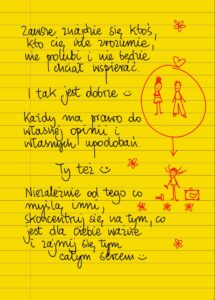 Zawsze znajdzie się ktoś,
kto cię nie zrozumie,
nie polubi i nie będzie
chciał wspierać.
I tak jest dobrze
Każdy ma prawo do
własnej opinii i
własnych upodobań
Ty też
Niezależnie od tego co
myślą inni,
skoncentruj się na tym, co
jest dla Ciebie ważne
i zajmij się tym
całym sercem